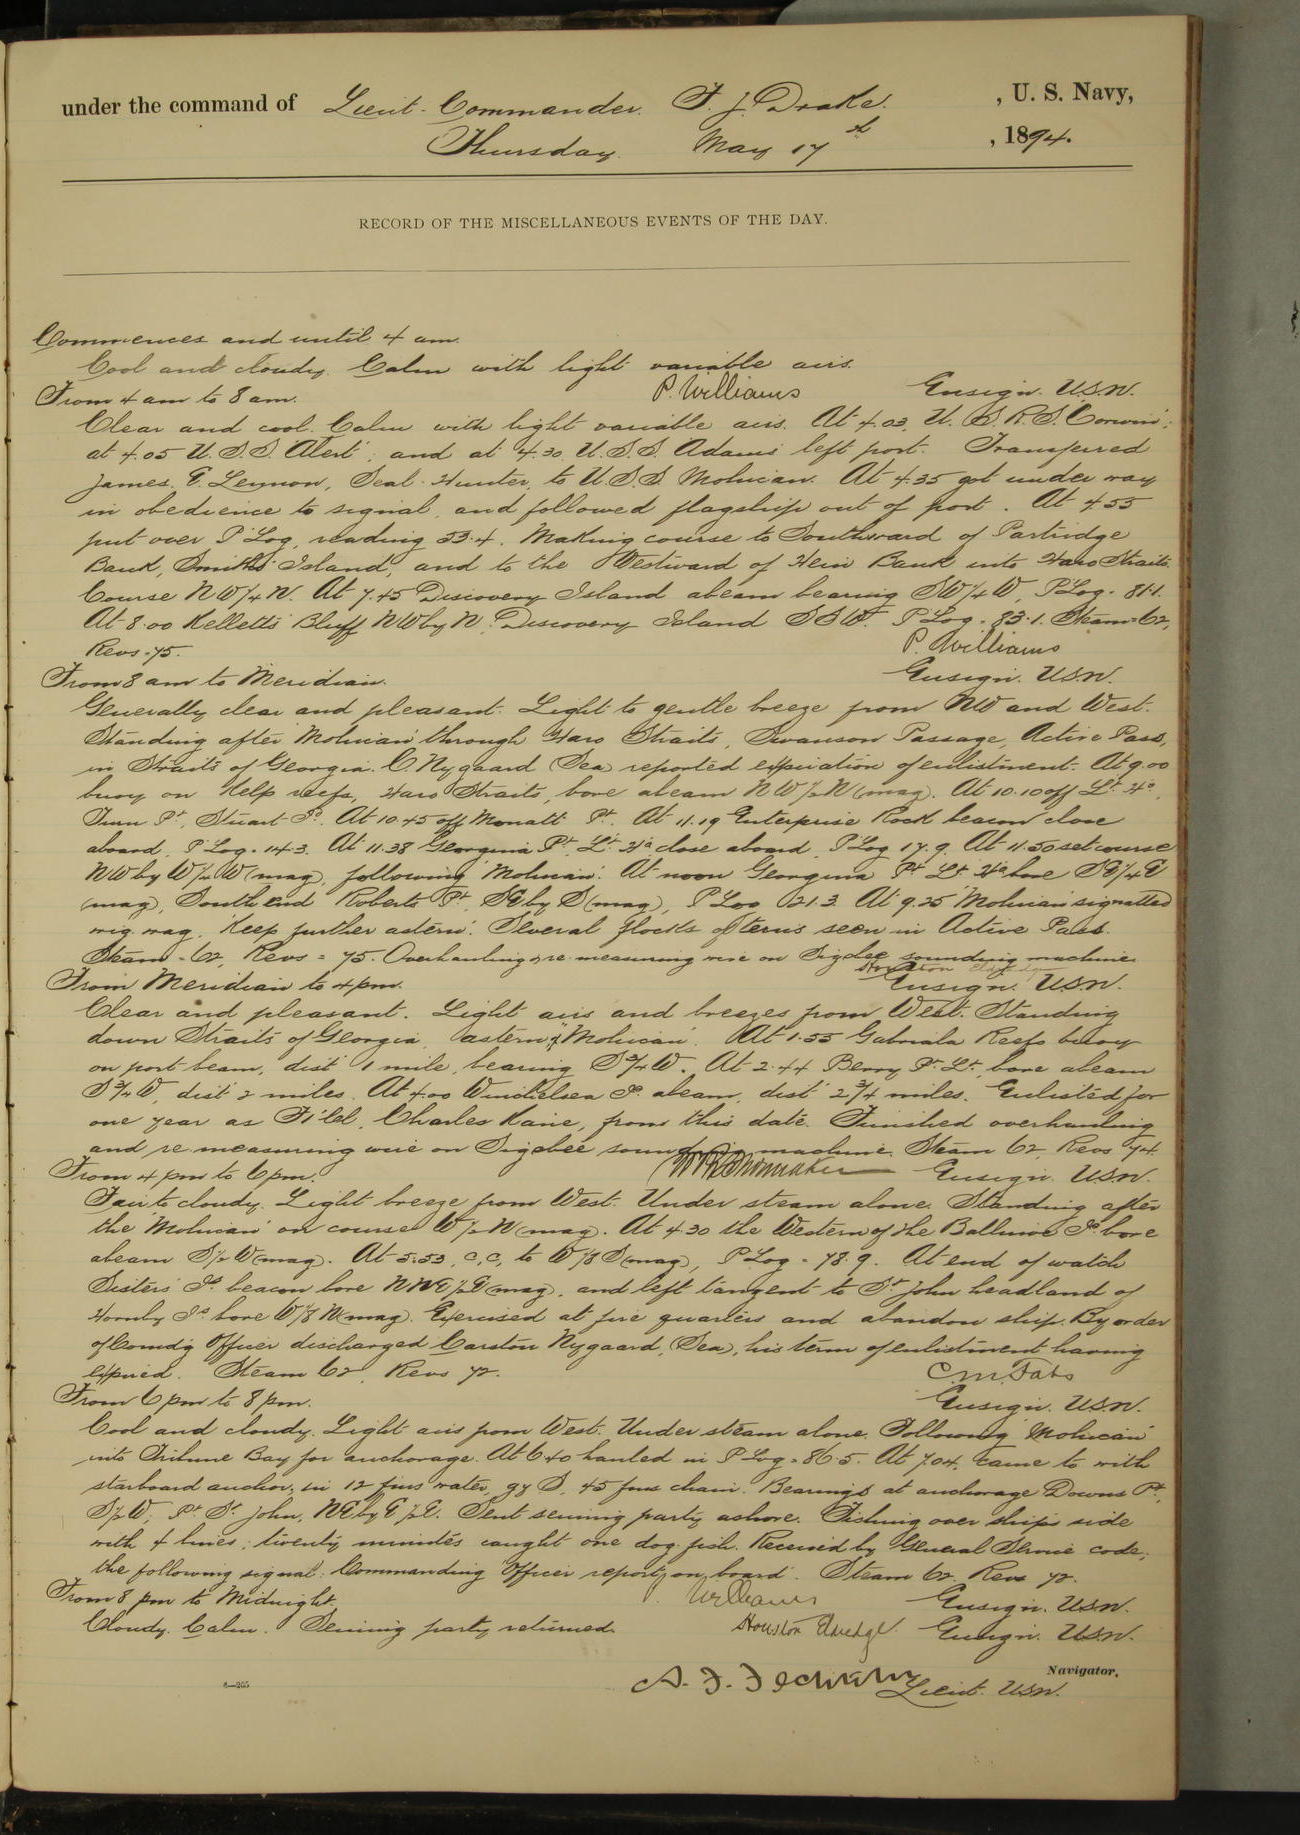 under the command of Lieut-Commander. F. J. Drake. , U. S. Navy,
Thursday. May 17th , 1894.
RECORD OF THE MISCELLANEOUS EVENTS OF THE DAY.
Commences and until 4 am.
Cool and cloudy. Calm with light variable airs.
P. Williams Ensign. U.S.N.
From 4 am to 8 am.
Clear and cool. Calm with light variable airs. At 4.03, U. S. R. S. "Corwin";
at 4.05 U.S.S. "Alert"; and at 4.30 U.S.S. Adams left port. Transferred
James. E. Lennon, Seal-Hunter, to U.S.S Mohican. At 4.35 got under way
in obedience to signal, and followed flagship out of port. At 4.55
put over P Log, reading 53.4. Making course to Southward of Partridge
Bank, Smith's Island, and to the Westward of Hein Bank into Haro Straits.
Course NW¼N. At 7.45 Discovery Island abeam bearing SW¼W, P.Log. 81.1.
At 8.00 Kelletts Bluff NWbyN, Discovery Island SSW. P Log. 83.1. Steam=62,
Revs-75. P. Williams
Ensign. U.S.N.
From 8 am to Meridian.
Generally clear and pleasant. Light to gentle breeze from NW and West.
Standing after "Mohican" through Haro Straits, Swanson Passage, Active Pass,
in Straits of Georgia. C Nygaard (Sea) reported expiration of enlistment. At 9.00
buoy on Kelp reefs, Haro Straits, bore abeam NW½N (mag). At 10.10 off Lt. Ho.,
Turn Pt., Stuart Id. At 10.45 off Monatt Pt. At 11.19 Enterprise Rock beacon close
aboard, P Log. 14.3. At 11.38 Georgina Pt. Lt. Ho close aboard, P Log 17.9. At 11.50 set course
NWbyW½W (mag), following "Mohican". At noon Georgina Pt Lt Ho bore SE¼E
(mag), South end Roberts Pt, SEbyS (mag), P Log 21.3. At 9.25 "Mohican" signalled
wig. wag, "Keep further astern". Several flocks of terns seen in Active Pass.
Steam = 62, Revs = 75. Overhauling & re-measuring wire on Sigsbee sounding machine.
Houston Eldredge
Ensign. U.S.N.
From Meridian to 4 pm.
Clear and pleasant. Light airs and breezes from West. Standing
down Straits of Georgia, astern of "Mohican". At 1.55 Gabriala Reefs buoy
on port beam, dist 1 mile, bearing S¾W. At 2.44 Berry Pt. Lt. bore abeam
S¾W, dist 2 miles. At 4.00 Winchelsea Id. abeam, dist 2¾ miles. Enlisted for
one year as F.1'cl, Charles Kane, from this date. Finished overhauling
and re-measuring wire on Sigsbee sounding machine. Steam 62, Revs 74.
Ensign. U.S.N.
From 4 pm to 6 pm.
Fair to cloudy. Light breeze from West. Under steam alone. Standing after
the "Mohican" on course W½N (mag). At 4.30 the Western of the Ballinac Ids bore
abeam S½W (mag). At 5.53, c.c, to W⅛S (mag), P Log. 78.9. At end of watch
Sisters Ids beacon bore NNE½E (mag), and left tangent to St. John headland of
Hornby Id. bore W⅛N (mag). Exercised at fire quarters and abandon ship. By order
of Comdg Officer discharged Carston Nygaard, (Sea), his term of enlistment having
expired. Steam 62 Revs 72. C. M. Fahs
Ensign. U.S.N.
From 6 pm to 8 pm.
Cool and cloudy. Light airs from West. Under steam alone. Following "Mohican"
into Tribune Bay for anchorage. At 6.40 hauled in P Log. 86.5. At 7.04, came to with
starboard anchor, in 12 fms water, gy S. 45 fms chain. Bearings at anchorage Downs Pt.,
S½W, Pt St. John, NEbyE½E. Sent seining party ashore. Fishing over ship's side
with 4 lines; twenty minutes caught one dog-fish. Received by General Service code,
the following signal. "Commanding Officer report on board". Steam 62, Revs 72.
Williams Ensign. U.S.N.
From 8 pm to Midnight.
Cloudy. Calm. Seining party returned.
Houston Eldredge. Ensign. U.S.N.
Navigator.
Lieut. U.S.N.
6—205